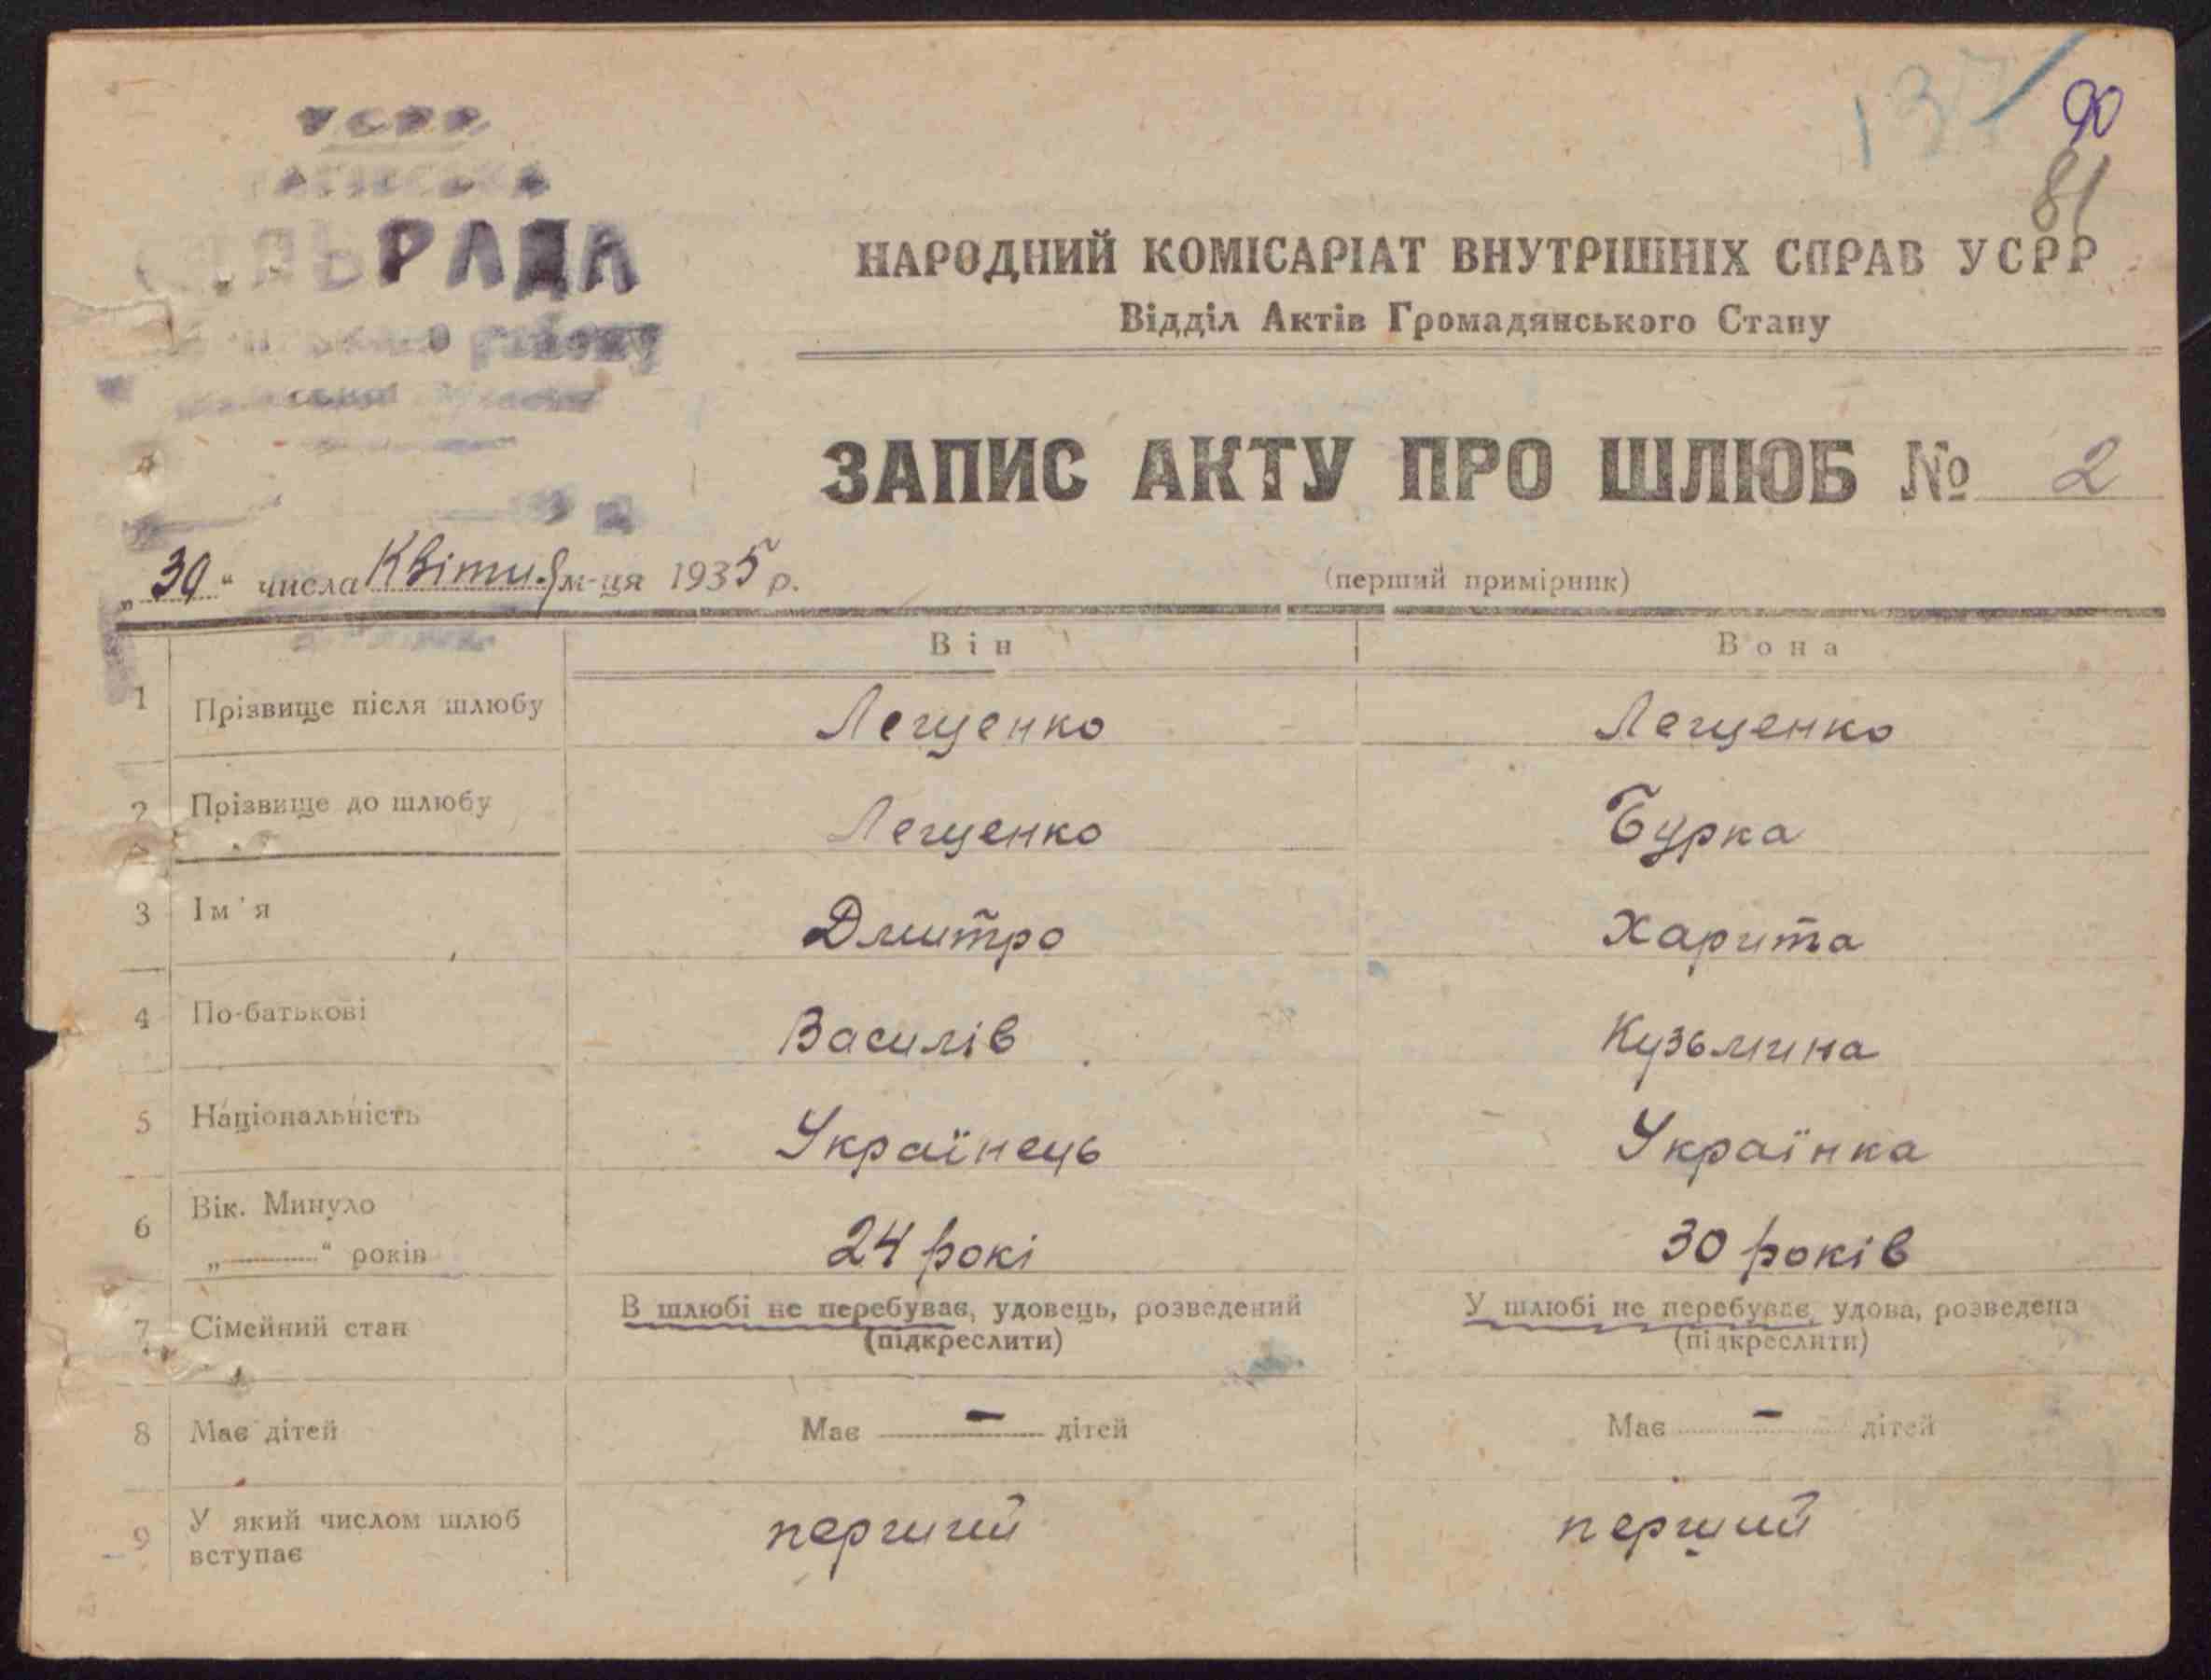 137
90
81
УСРР
СІЛЬРАДА
району
НАРОДНИЙ КОМІСАРІАТ ВНУТРІШНІХ СПРАВ УСРР
Відділ Актів Громадянського Стану
ЗАПИС АКТУ ПРО ШЛЮБ № 2
„30“ числа Квітн.я м-ця 1935 р.
(перший примірник)
Він Вона
1 Прізвище після шлюбу Лещенко Лещенко
2 Прізвище до шлюбу Лещенко Бурка
3 Ім'я Дмитро Харита
4 По-батькові Василів Кузьмина
5 Національність Українець Українка
6 Вік. Минуло
„ “ років 24 рокі 30 років
7 Сімейний стан В шлюбі не перебував, удовець, розведений У шлюбі не перебуває, удова, розведена
(підкреслити) (підкреслити)
8 Має дітей Має — дітей Має — дітей
9 У який числом шлюб
вступає перший перший